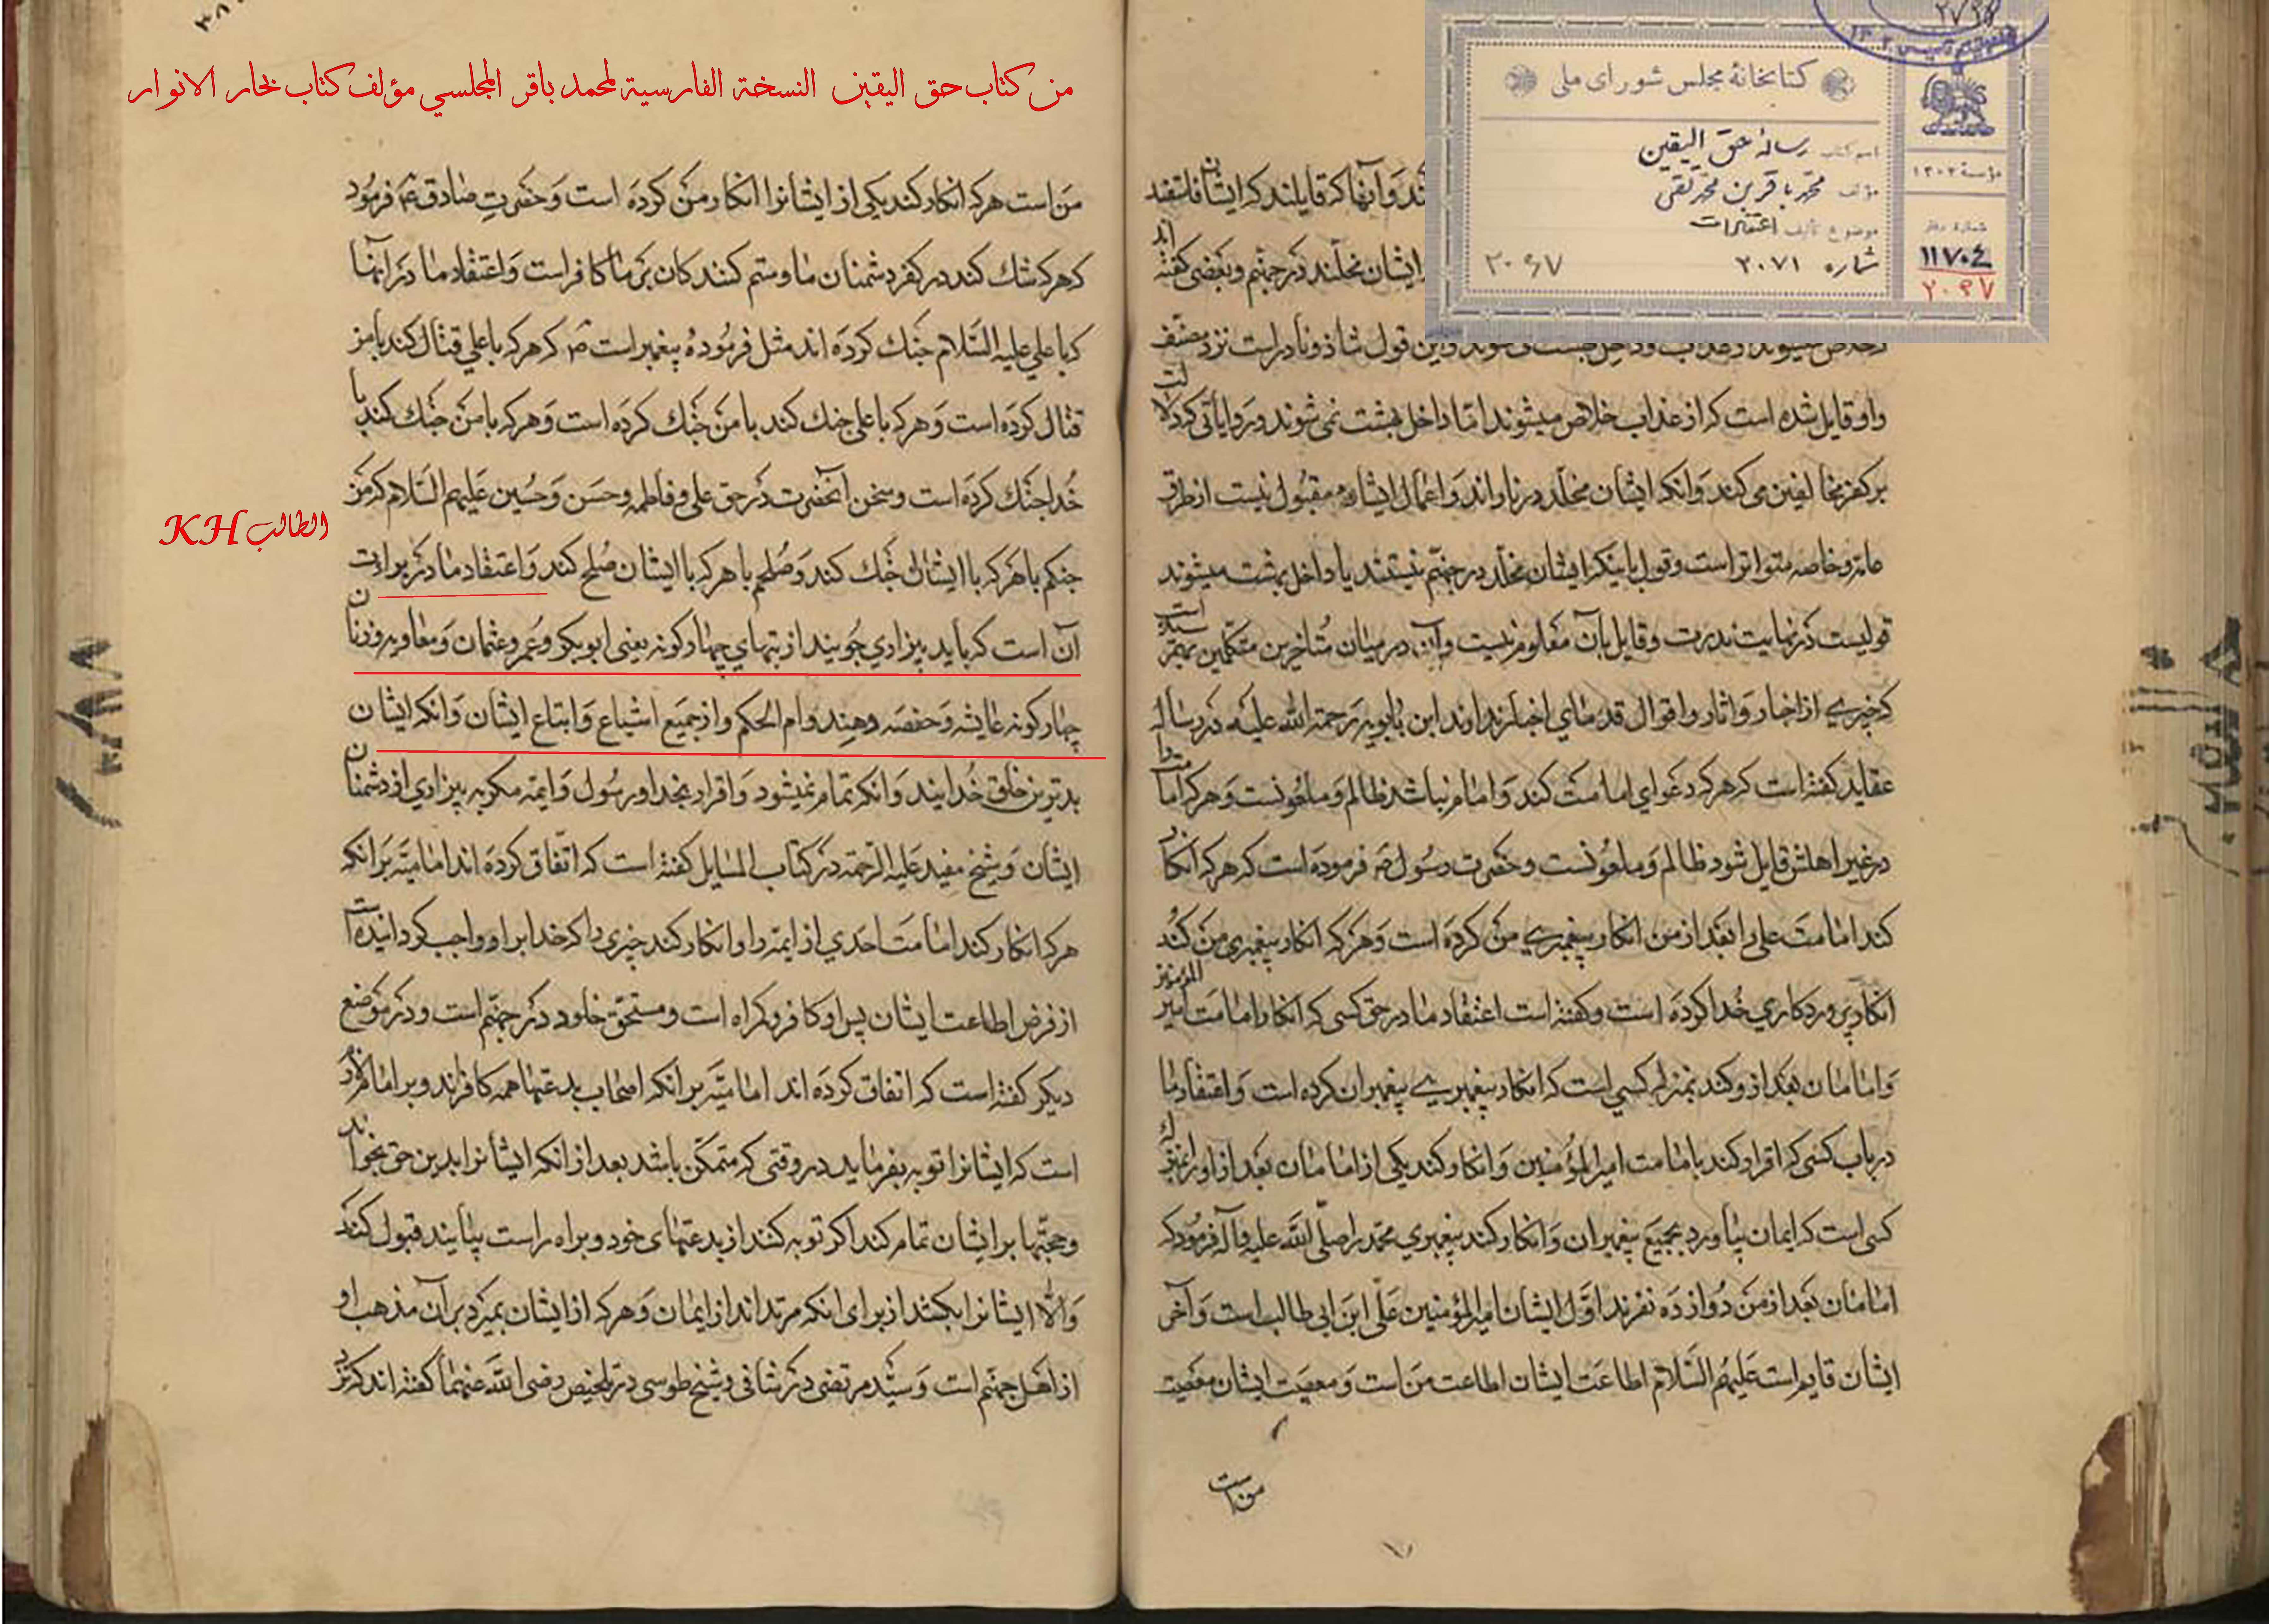 من كتاب حق اليقين النسخة الفارسية لمحمد باقر المجلسي مؤلف كتاب بحار الانوار
الطالب KH
كتابخانهٔ مجلس شورای ملی
اسم كتاب رساله حق الیقین
مؤلف محمد باقر بن محمد تقی
موضوع تألیف اعتقادات
شماره ۲۰۷۱
۲۰۹۷
مؤسسهٔ ۱۳۰۲
شماره دفتر
۱۱۷۰٤
۲۰۹۷
كند و آنها كه قایلند كه ایشان فاسقند
ایشان مخلّدند در جهنم و بعضی گفته اند
و این قول شاذ و نادر است نزد مصنف
و او قایل شده است كه از عذاب خلاص میشوند امّا داخل بهشت نمی شوند و روایاتی كه دلالت
بر كفر مخالفین می كند و آنكه ایشان مخلّد در نار اند و اعمال ایشان مقبول نیست از طرق
عامه و خاصه متواتر است و قول باینكه ایشان مخلّد در جهنّم نیستند یا داخل بهشت میشوند
قولیست در نهایت ندرت و قایل بآن معلوم نیست و آن در میان متأخرین متكلمین
كه خبری از اخبار و اثار و اقوال قدمای اخبار ندارند ابن بابویه رحمة الله علیه در رساله
عقاید گفته است كه هركه دعوای امامت كند و امام نباشد ظالم و ملعونست و هركه امامت را
در غیر اهلش قایل شود ظالم و ملعونست و حضرت رسول ص فرموده است كه هركه انكار
كند امامت علی را بعد از من انكار پیغمبری من كرده است و هركه انكار پیغمبری من كند
انكار پروردگاری خدا كرده است و گفته است اعتقاد ما در حق كسی كه انكار امامت امیر المؤمنین
و امامان بعد از او كند بمنزله كسی است كه انكار پیغمبری پیغمبران كرده است و اعتقاد ما
در باب كسی كه اقرار كند بامامت امیر المؤمنین و انكار كند یكی از امامان بعد از او را
كسی است كه ایمان بیاورد بجمیع پیغمبران و انكار كند پیغمبری محمد را صلّی الله علیه و آله فرمود كه
امامان بعد از من دوازده نفرند اوّل ایشان امیر المؤمنین علّی ابن ابی طالب است و آخر
ایشان قایم است علیهم السّلام اطاعت ایشان اطاعت من است و معصیت ایشان معصیت
من است
من است هركه انكار كند یكی از ایشانرا انكار من كرده است و حضرت صادق ع فرمود
كه هركه شك كند در كفر دشمنان ما و ستم كنندكان بر ما كافر است و اعتقاد ما در آنها
كه با علی علیه السّلام جنك كرده اند مثل فرموده پیغمبر است ص كه هركه با علی قتال كند با من
قتال كرده است و هركه با علی جنك كند با من جنك كرده است و هركه با من جنك كند با
خدا جنك كرده است و سخن آنحضرت در حق علی و فاطمه و حسن و حسین علیهم السّلام كه من
جنكم با هركه با ایشان جنك كند و صلحم با هركه با ایشان صلح كند و اعتقاد ما در براءت
آن است كه باید بیزاری جویند از بتهای چهاركونه یعنی ابوبكر و عمر و عثمان و معاویه و زنان
چهاركونه عایشه و حفصه و هند و ام الحكم و از جمیع اشیاع و اتباع ایشان و آنكه ایشان
بدترین خلق خدایند و آنكه تمام نمیشود و اقرار بخدا و رسول و ایمّه مكر به بیزاری از دشمنان
ایشان و شیخ مفید علیه الرّحمة در كتاب المسایل گفته است كه اتّفاق كرده اند امامیّه بر انكه
هركه انكار كند امامت احدی از ایمّه را و انكار كند چیزی را كه خدا بر او واجب كردانیده است
از فرض اطاعت ایشان پس او كافر و كمراه است و مستحق خلود در جهنّم است و در موضع
دیكر گفته است كه اتفاق كرده اند امامیّه بر انكه اصحاب بدعتها همه كافرند و بر امام لازم
است كه ایشانرا توبه بفرماید در وقتی كه متمكّن باشد بعد از انكه ایشانرا بدین حق بخواند
و حجّتها بر ایشان تمام كند اكر توبه كنند از بدعتهای خود و براه راست بیایند قبول كند
و الّا ایشانرا بكشد از برای انكه مرتد اند از ایمان و هركه از ایشان بمیرد بر آن مذهب او
از اهل جهنّم است و سیّد مرتضی در شافی و شیخ طوسی در تلخیص رضی الله عنهما گفته اند كه نزد